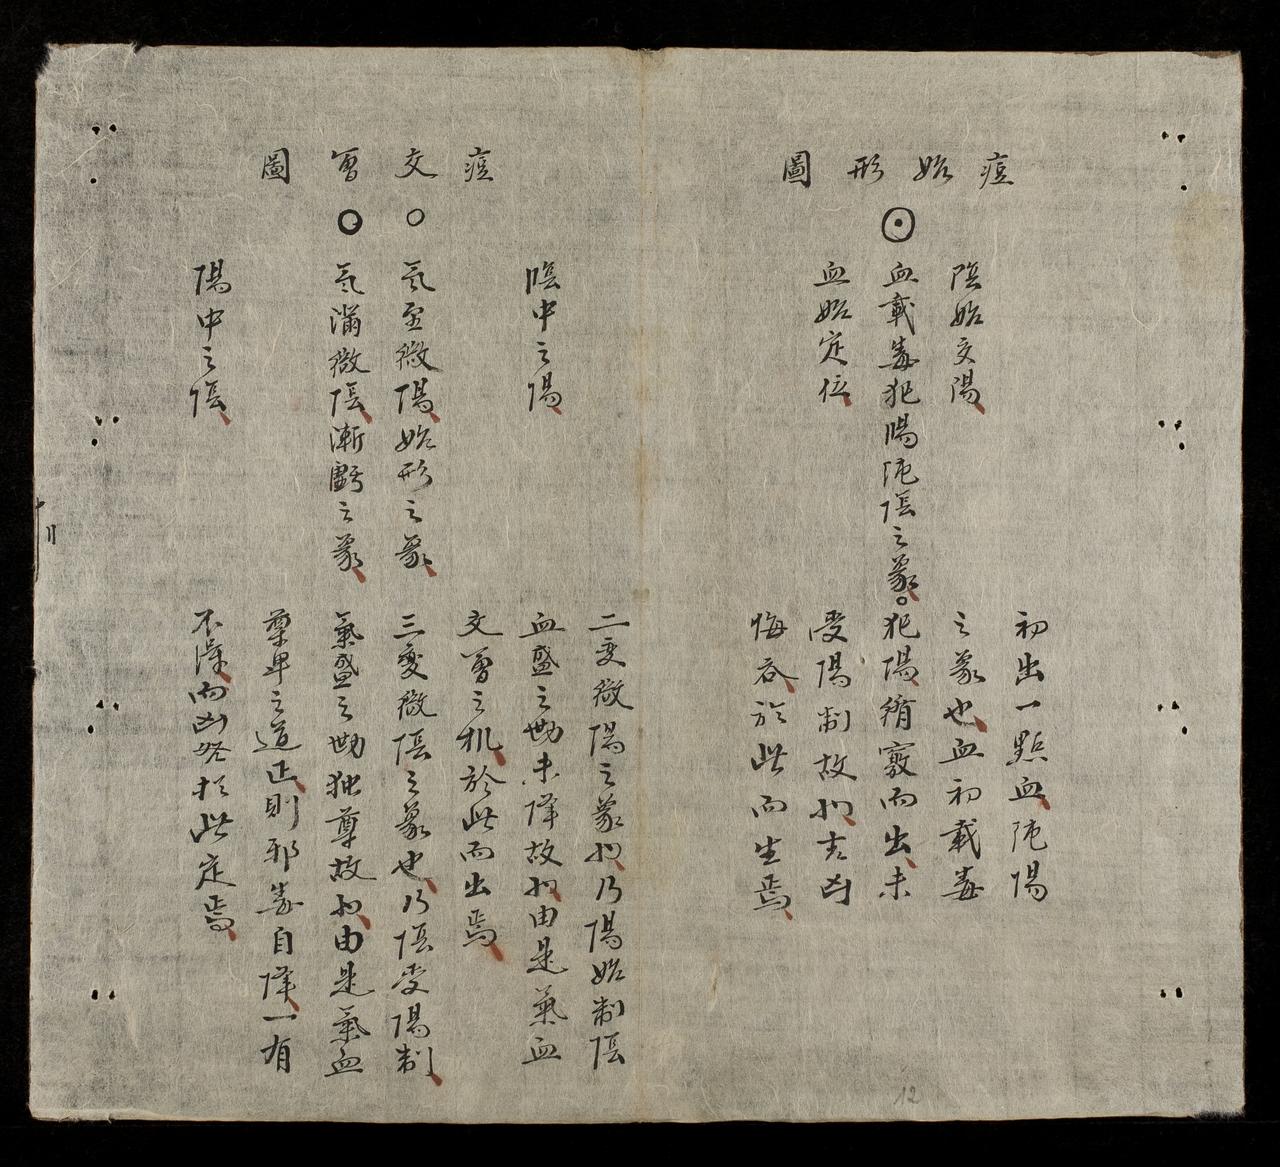 痘始形圖
陰始交陽
血載毒犯陽沌陰之象。
血始定位
初出一點血沌陽
之象也血初載毒
犯陽循竅而出未
受陽制故也吉凶
悔吝於此而生焉
痘交會圖
陰中之陽
氣至微陽始形之象
氣滿微陰漸虧之象
陽中之陰
二变微陽之象也乃陽始制陰
血盛之勢未降故也由是氣血
交會之机於此而出焉
三变微陰之象也乃陰受陽制
氣盛之勢独尊故也由是氣血
尊卑之道正則邪毒自降一有
不降而凶咎於此定焉
12